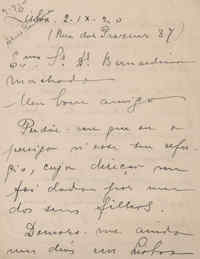 Lisboa, 2-IX-20
(Rua dos Prazeres 87)
Exmo Sr. Dr. Bernardino
Machado
Meu bom amigo
Perdõe-me que eu o
persiga n'esse seu refu-
gio, cuja direção me
foi dada por um
dos seus filhos.
Demoro-me ainda
uns dias em Lisboa